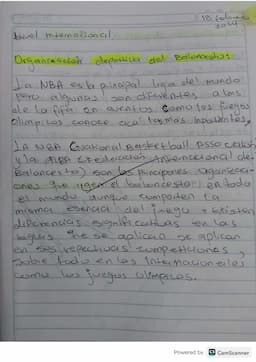 18, febrero
2024
Nivel Internacional
Organización deportiva del Baloncesto:
La NBA es la principal liga del mundo
pero algunas son diferentes a las
de la fifa en eventos como los juegos
Olimpicos conoce acá las mas
LA NBA (National Basketball Asso
y la FIBA (Federación Internacional de
Baloncesto) son las principares organizaci-
ones que rigen el baloncesto en todo
el mundo aunque comparten la
misma esencia del juego existen
diferencias significativas en las
que se aplican se aplican
en sus repectivas competiciones,
sobre todo en las Internacionales
como los juegos olimpicos.
Powered by CS CamScanner